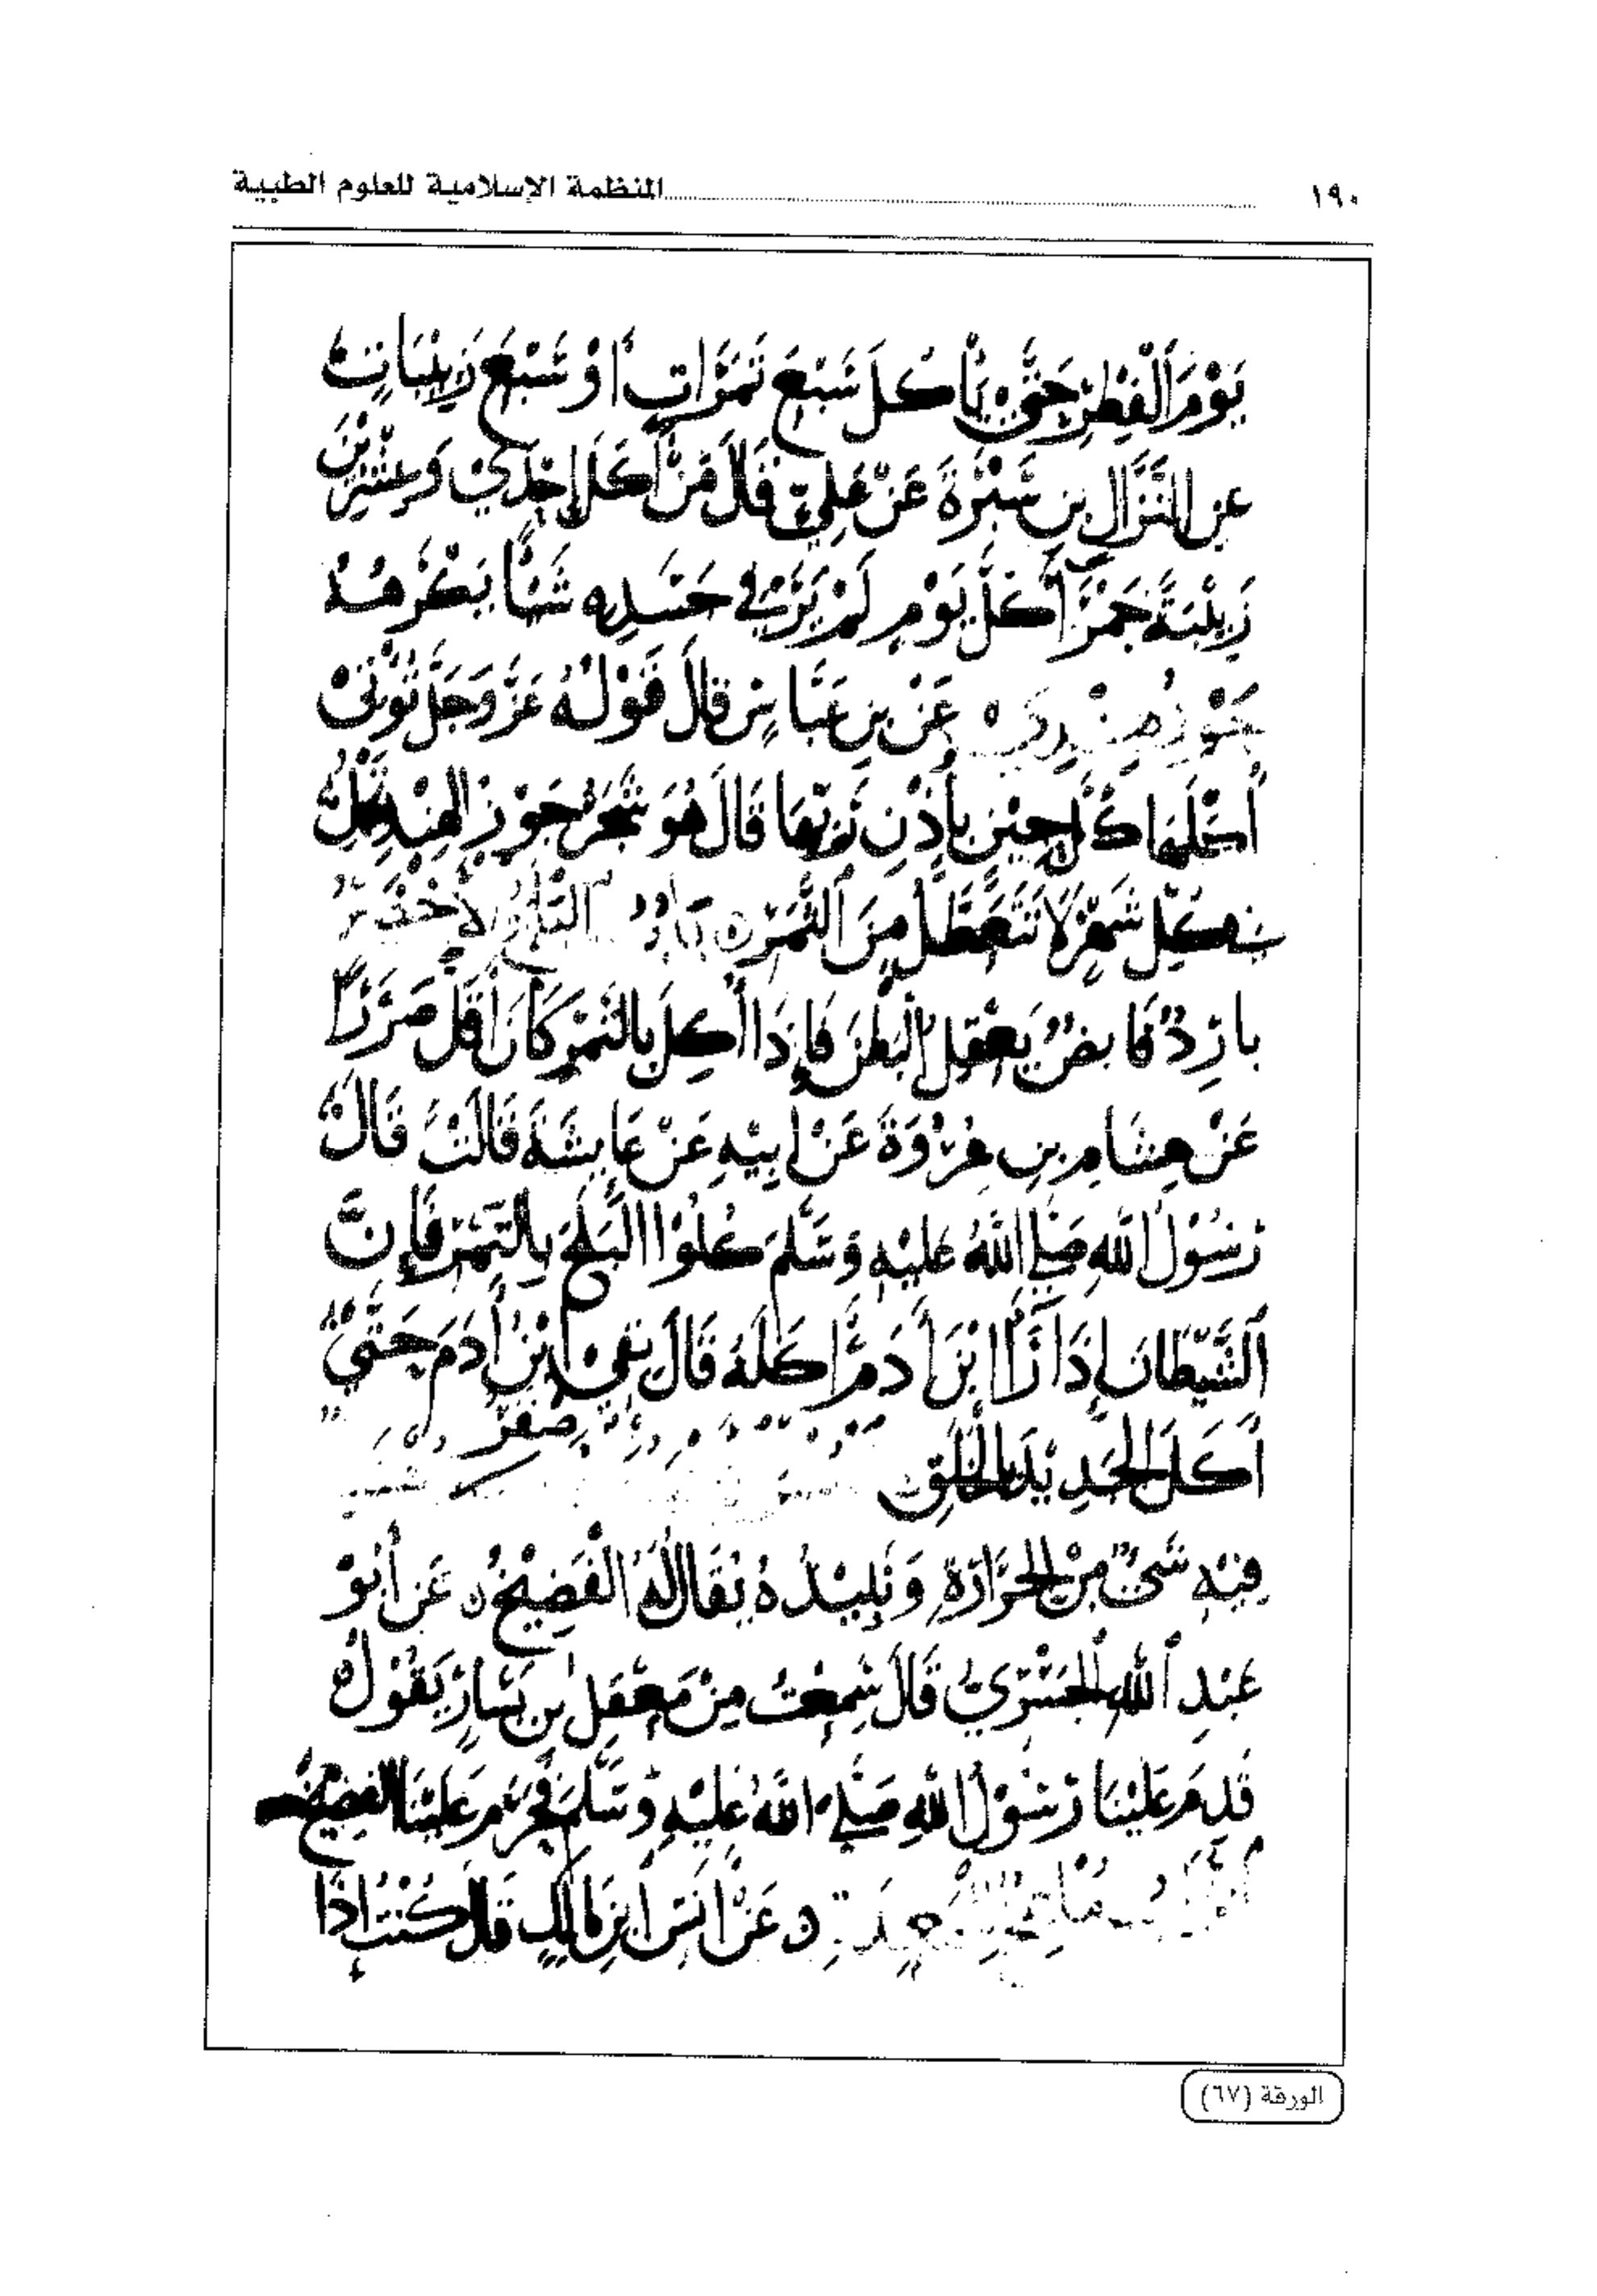 ١٩٠ المنظمة الإسلامية للعلوم الطبية
يَوْمَ الْفِطْرِ حَتَّى يَأْكُلَ سَبْعَ تَمَرَاتٍ أَوْ سَبْعَ زَبِيبَاتٍ
عن النَّزَّالِ بنِ سَبْرَةَ عَنْ عَلِيٍّ قَالَ مَنْ أَكَلَ إِحْدَى وَعِشْرِينَ
زَبِيْبَةً حَمْرَاءَ كُلَّ يَوْمٍ لَمْ يَرَ فِي جَسَدِهِ شَيْئًا يَكْرَهُهُ
جَوْز هِنْدِي عَنْ بنِ عَبَّاسٍ قَالَ قَوْلُهُ عَزَّ وَجَلَّ تُؤْتِي
أُكُلَهَا كُلَّ حِيْنٍ بِإِذْنِ رَبِّهَا قَالَ هُوَ شَجَرُ جَوْزِ الْهِنْدِ
كُلِّ شَهْرٍ لَا تَتَعَطَّلُ مِنَ الثَّمَرِ الأَخْضَرُ
بارِدٌ قَابِضٌ يَعْقِلُ الْبَطْنَ فَإِذَا أُكِلَ بِالتَّمْرِ كَانَ أَقَلَّ ضَرَرًا
عَنْ هِشَامِ بنِ عُرْوَةَ عَنْ أَبِيْهِ عَنْ عَايِشَةَ قَالَتْ قَالَ
رَسُوْلُ اللهِ صَلَّى اللهُ عَلَيْهِ وَسَلَّمَ كُلُوْا الْبَلَحَ بِالتَّمْرِ فَإِنَّ
الشَّيْطَانَ إِذَا رَأَى ابْنَ آدَمَ أَكَلَهُ قَالَ بَقِيَ ابْنُ آدَمَ حَتَّى
أَكَلَ الْحَدِيْدَ بِالْخَلَقِ
فِيْهِ شَيْءٌ مِنْ الْحَرَارَةِ وَنَبِيْذُهُ يُقَالُ لَهُ الْفَضِيْخُ عَن أَبُوْ
عَبْدِ اللهِ الْجَسْرِيُّ قَالَ سَمِعْتُ مِنْ مَعْقِلِ بْنِ يَسَارٍ يَقُوْلُ
قَدِمَ عَلَيْنَا رَسُوْلُ اللهِ صَلَّى اللهُ عَلَيْهِ وَسَلَّمَ فَحَرَّمَ عَلَيْنَا الفَضِيْخَ
عَنْ أَنَسِ ابْنِ مَالِكٍ قَالَ كُنْتُ إِذَا
الورقة (٦٧)